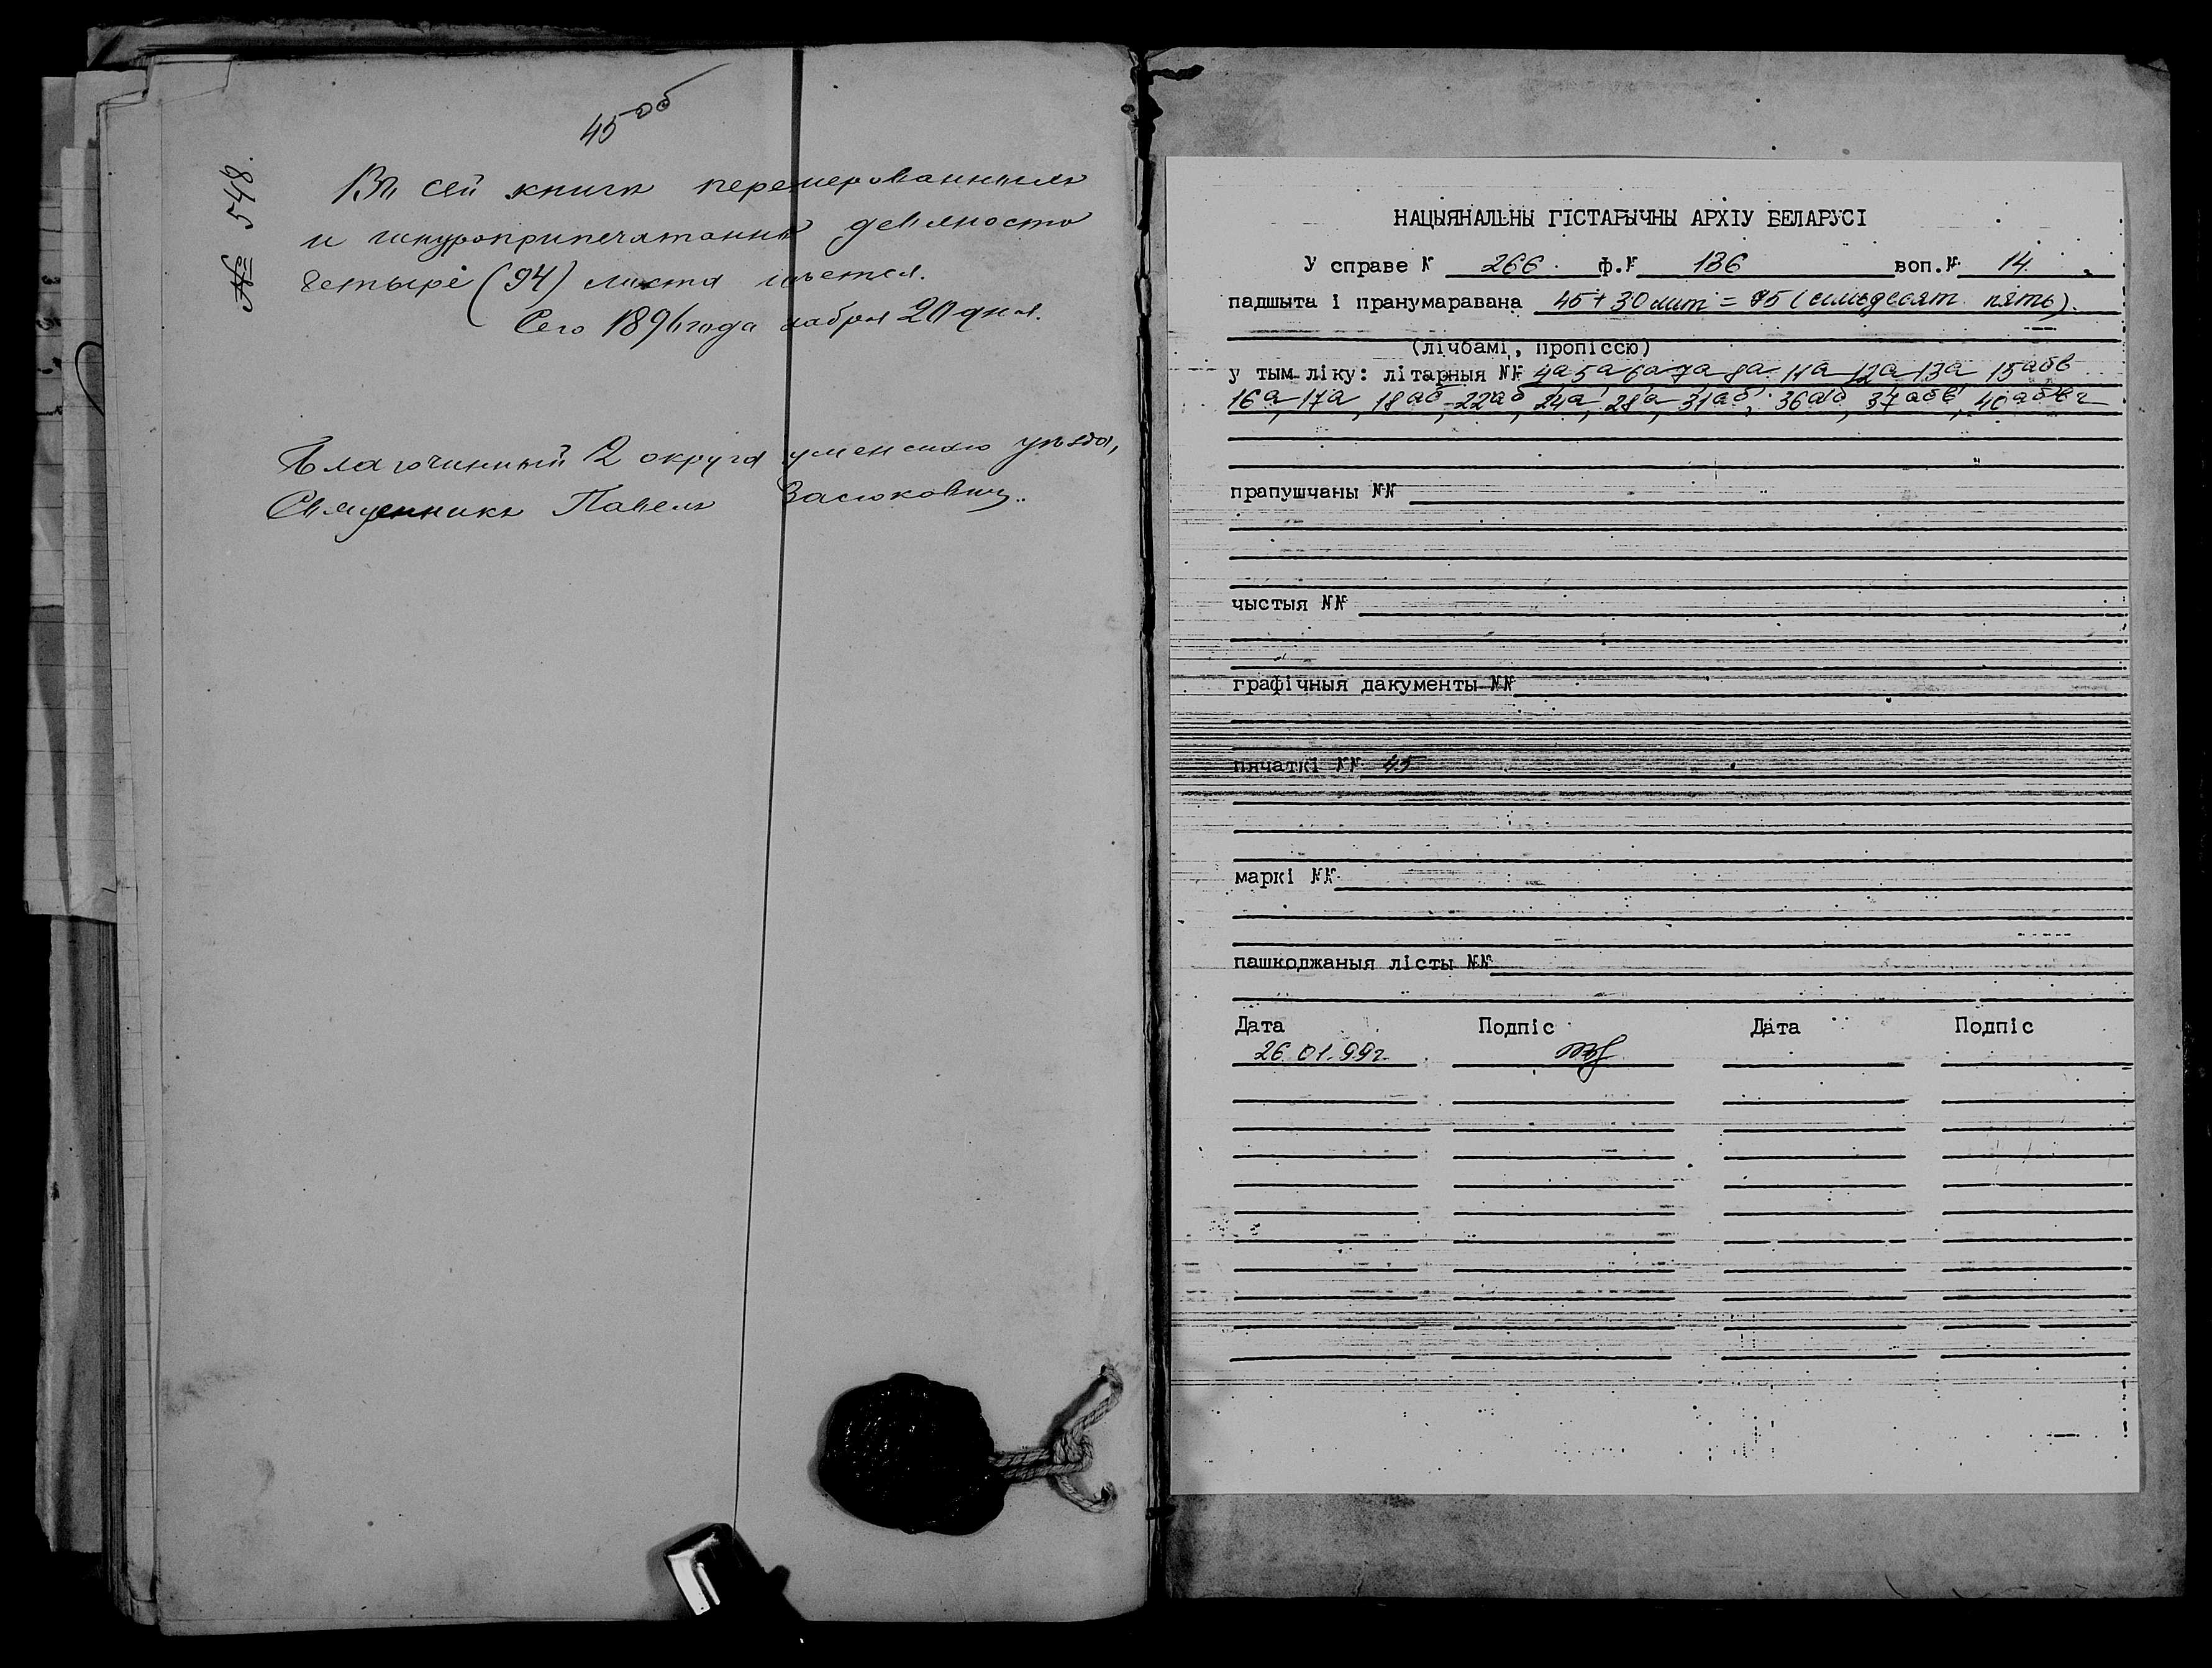 45 об
№ 548.
Въ сей книгѣ перемерованныхъ
и шнуроприпечатанныхъ девяносто
четыре (94) листа имѣется.
Сего 1896 года 20 дня.
Благочинный 2 округа Игуменскаго уѣзда,
Священникъ Павелъ Васюковичъ.
НАЦЫЯНАЛЬНЫ ГІСТАРЫЧНЫ АРХІУ БЕЛАРУСІ
У справе № 266 ф.№ 136 воп.№ 14
падшыта і пранумаравана 45 + 30 лит = 75 (семьдесят пять).
(лічбамі, пропіссю)
у тым ліку: літарныя №№ 4а 5а 6а 7а 8а 11а 12а 13а 15абв
16а, 17а, 18аб, 22аб, 24а, 28а, 31аб, 36аб, 37абв, 40абвг
прапушчаны №№
чыстыя №№
графічныя дакументы №№
пячаткі №№ 45
маркі №№
пашкоджаныя лісты №№
Дата Подпіс Дата Подпіс
26.01.99г.